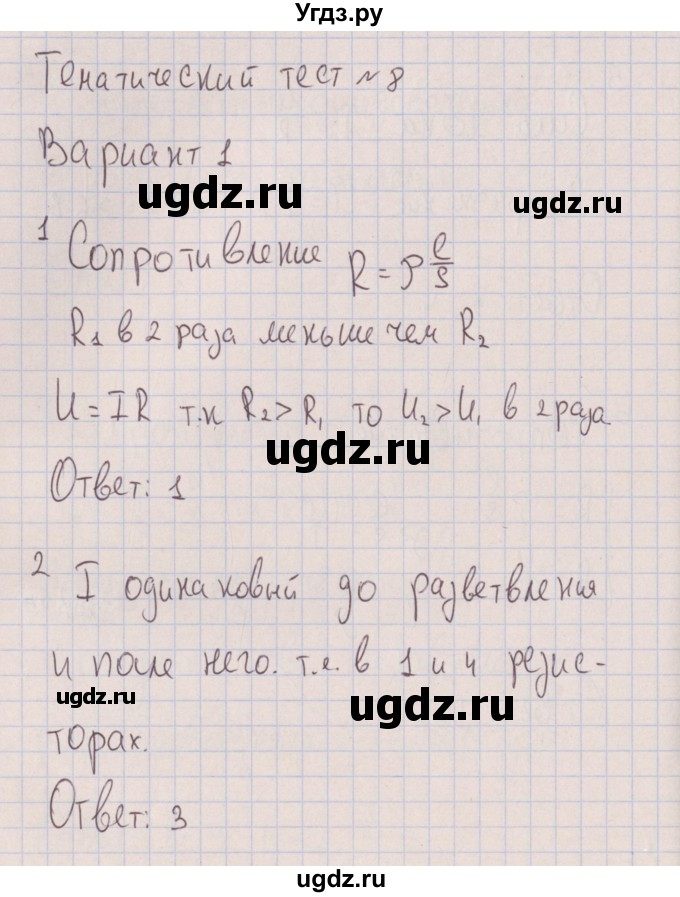 Угдз.ру
Тематический тест №8
Вариант 1
ugdz.ru
ugdz.ru
1 Сопротивление R = ρ l/S
R₁ в 2 раза меньше чем R₂
U = IR т.к R₂ > R₁ то U₂ > U₁ в 2 раза
ugdz.ru
Ответ: 1
2 I одинаковый до разветвления
и поле него. т.е. в 1 и 4 резис-
ugdz.ru
ugdz.ru
торах.
Ответ: 3
ugdz.ru